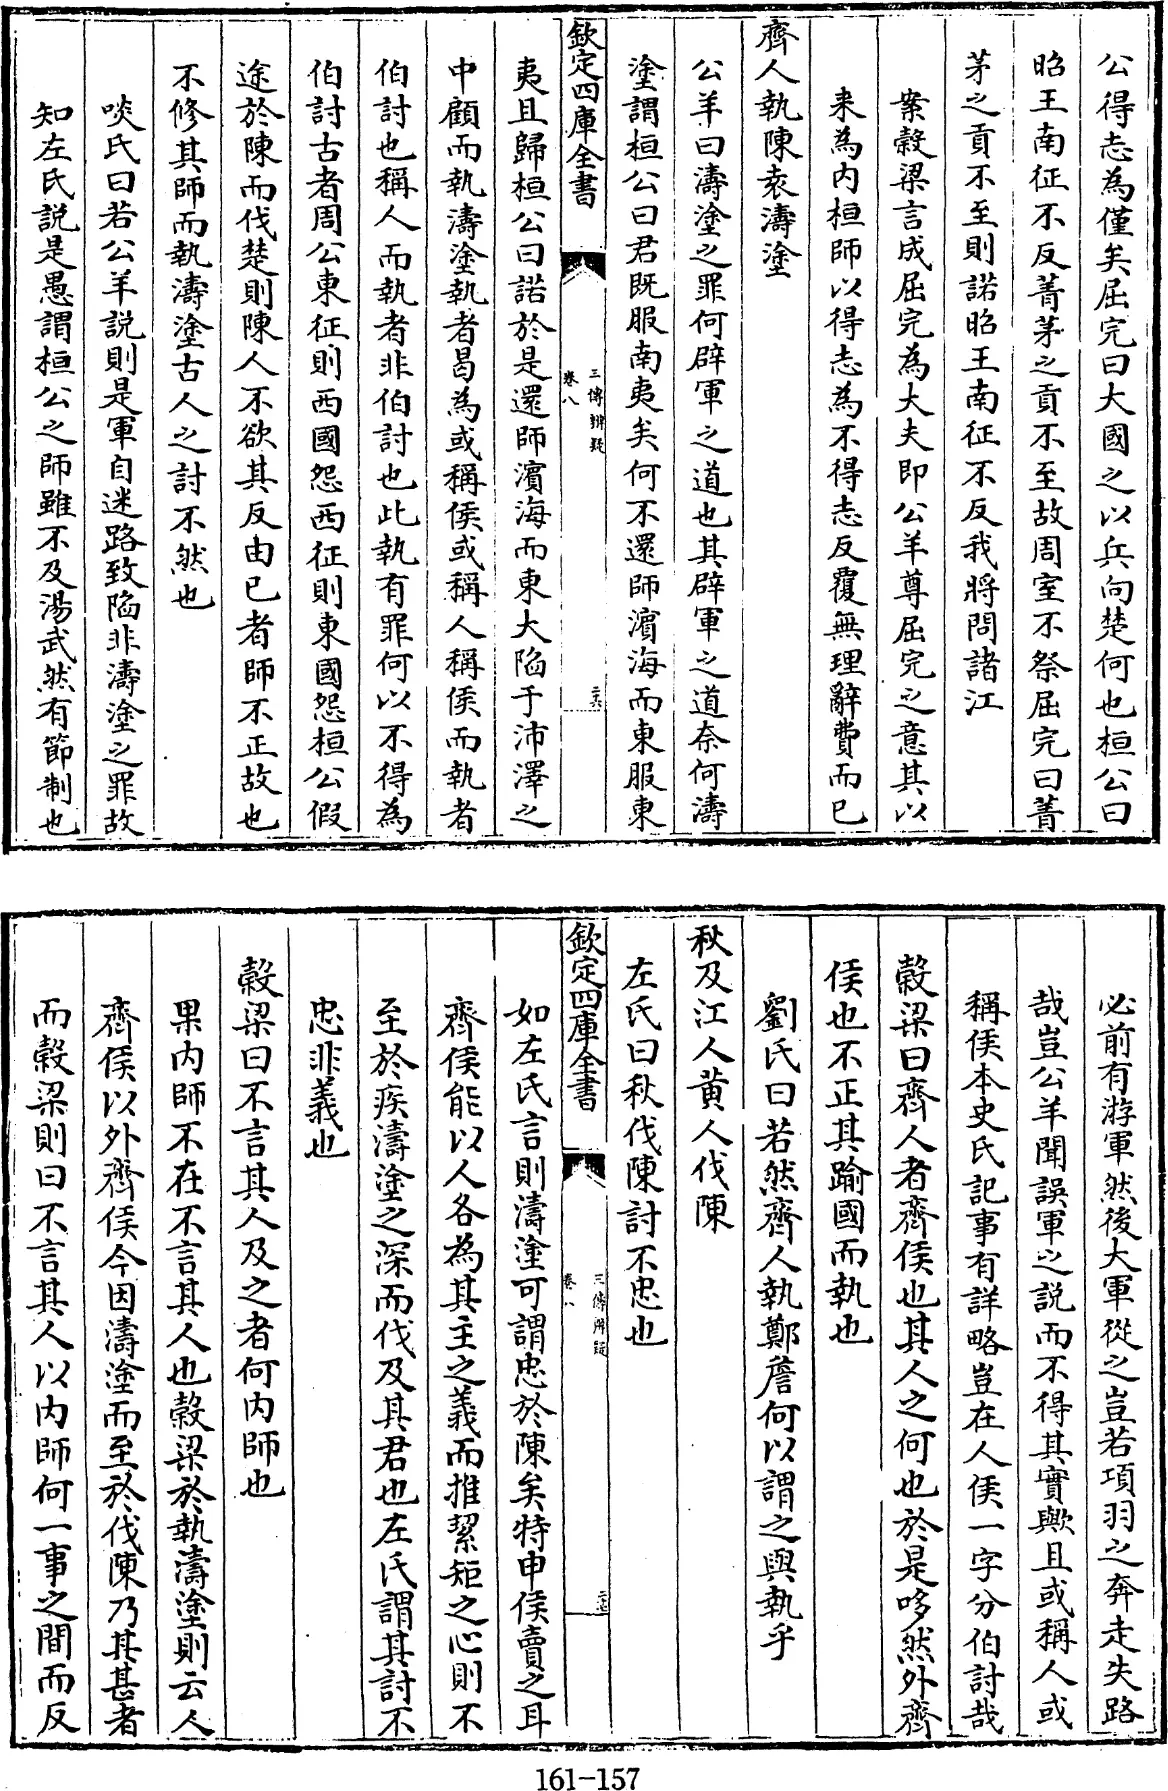 公得志為僅矣屈完曰大國之以兵向楚何也桓公曰
昭王南征不反菁茅之貢不至故周室不祭屈完曰菁
茅之貢不至則諾昭王南征不反我將問諸江
案穀梁言成屈完為大夫即公羊尊屈完之意其以
来為内桓師以得志為不得志反覆無理辭費而已
齊人執陳袁濤塗
公羊曰濤塗之罪何辟軍之道也其辟軍之道奈何濤
塗謂桓公曰君既服南夷矣何不還師濱海而東服東
欽定四庫全書
三傳辨疑
卷八
二六
夷且歸桓公曰諾於是還師濱海而東大陷于沛澤之
中顧而執濤塗執者曷為或稱侯或稱人稱侯而執者
伯討也稱人而執者非伯討也此執有罪何以不得為
伯討古者周公東征則西國怨西征則東國怨桓公假
途於陳而伐楚則陳人不欲其反由已者師不正故也
不修其師而執濤塗古人之討不然也
啖氏曰若公羊説則是軍自迷路致陷非濤塗之罪故
知左氏説是愚謂桓公之師雖不及湯武然有節制也
必前有游軍然後大軍從之豈若項羽之奔走失路
哉豈公羊聞誤軍之説而不得其實歟且或稱人或
稱侯本史氏記事有詳略豈在人侯一字分伯討哉
穀梁曰齊人者齊侯也其人之何也於是哆然外齊
侯也不正其踰國而執也
劉氏曰若然齊人執鄭詹何以謂之與執乎
秋及江人黄人伐陳
左氏曰秋伐陳討不忠也
欽定四庫全書
三傳辨疑
卷八
二七
如左氏言則濤塗可謂忠於陳矣特申侯賣之耳
齊侯能以人各為其主之義而推絜矩之心則不
至於疾濤塗之深而伐及其君也左氏謂其討不
忠非義也
穀梁曰不言其人及之者何内師也
果内師不在不言其人也穀梁於執濤塗則云人
齊侯以外齊侯今因濤塗而至於伐陳乃其甚者
而穀梁則曰不言其人以内師何一事之間而反
161-157